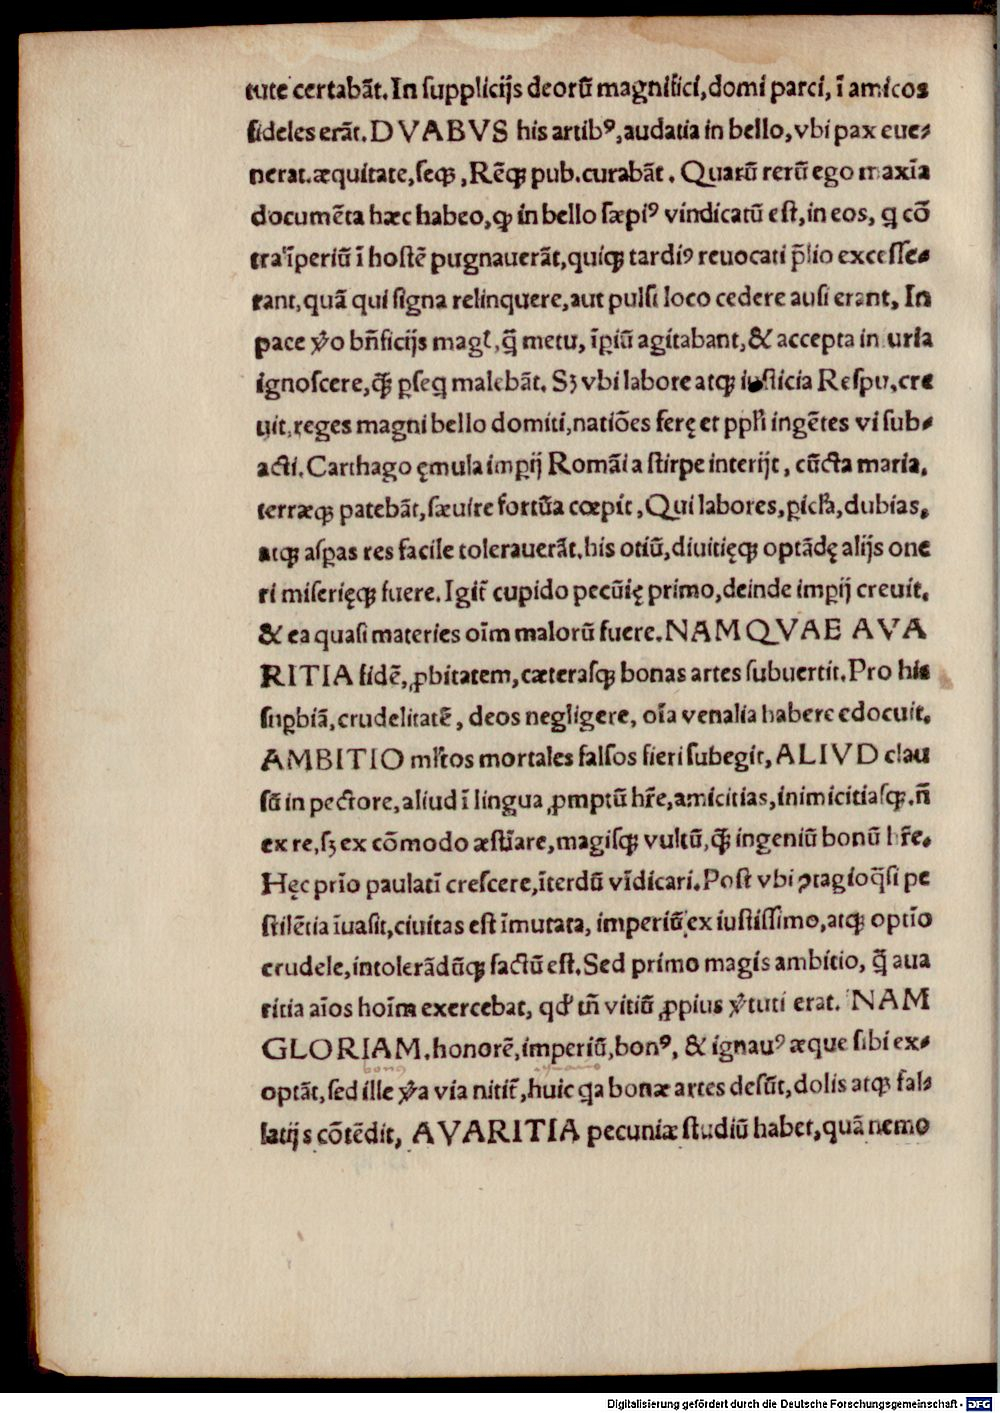 tute certabãt. In ſupplicijs deorũ magnifici, domi parci, ĩ amicos
fideles erãt. DVABVS his artibꝰ, audatia in bello, vbi pax eue-
nerat. æquitate, ſeqꝫ, Rẽqꝫ pub. curabãt. Quarũ rerũ ego maxĩa
documẽta hæc habeo, ꝙ in bello ſæpiꝰ vindicatũ eſt, in eos, q̃ cõ
tra ĩperiũ ĩ hoſtẽ pugnauerãt, quiqꝫ tardiꝰ reuocati p̃lio exceſſe-
rant, quã qui ſigna relinquere, aut pulſi loco cedere auſi erant, In
pace ỹo bñficijs magl, q̃ metu, ĩꝑiũ agitabant, & accepta iniuria
ignoſcere, q̃ꝫ ꝑſeq malebãt. Sꝫ vbi labore atqꝫ iuſticia Reſpu. cre
uit, reges magni bello domiti, natiões ferę et ppl̃i ingẽtes vi ſub-
acti. Carthago ęmula imꝑij Romãi a ſtirpe interijt, cũcta maria.
terræqꝫ patebãt, ſæuire fortũa cœpit, Qui labores, ꝑicl̃a, dubias,
atqꝫ aſꝑas res facile tolerauerãt. his otiũ, diuitięqꝫ optãdę alijs one
ri miſerięqꝫ fuere. Igit̃ cupido pecũię primo, deinde imꝑij creuit.
& ea quaſi materies oĩm malorũ fuere. NAMQVAE AVA
RITIA fidẽ, ꝓbitatem, cæteraſqꝫ bonas artes ſubuertit. Pro his
ſuꝑbiã, crudelitatẽ, deos negligere, oĩa venalia habere edocuit.
AMBITIO ml̃tos mortales falſos fieri ſubegit, ALIVD clau
ſũ in pectore, aliud ĩ lingua ꝓmptũ hr̃e, amicitias, inimicitiaſqꝫ. ñ
ex re, ſꝫ ex cõmodo æſtĩare, magiſqꝫ vultũ, q̃ꝫ ingeniũ bonũ hr̃e.
Hęc prĩo paulatĩ creſcere, ĩterdũ vĩdicari. Poſt vbi ꝯtagio q̃ſi pe
ſtilẽtia ĩuaſit, ciuitas eſt ĩmutata, imperiũ ex iuſtiſſimo, atqꝫ optĩo
crudele, intolerãdũqꝫ factũ eſt. Sed primo magis ambitio, q̃ aua
ritia aĩos hoĩm exercebat, qđ tñ vitiũ ꝓpius ỹtuti erat. NAM
GLORIAM. honorẽ, imperiũ, bonꝰ, & ignauꝰ æque ſibi ex-
bonꝰ ignauꝰ
optãt, ſed ille ỹa via nitit̃, huic q̃a bonæ artes deſũt, dolis atqꝫ fal-
latijs cõtẽdit, AVARITIA pecuniæ ſtudiũ habet, quã nemo
Digitalisierung gefördert durch die Deutsche Forschungsgemeinschaft - DFG